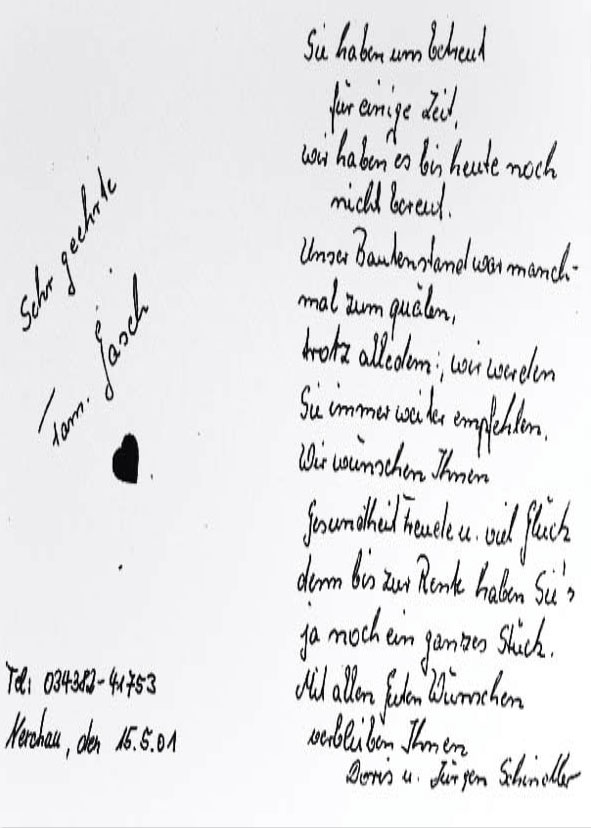 Sehr geehrte
Fam. Jäsch
Tel: 034382-41753
Nerchau, den 15.5.01
Sie haben uns betreut
für einige Zeit,
wir haben es bis heute noch
nicht bereut.
Unser Bautenstand war manch-
mal zum quälen,
trotz alledem, wir werden
Sie immer weiter empfehlen.
Wir wünschen Ihnen
Gesundheit Freude u. viel Glück
denn bis zur Rente haben Sie's
ja noch ein ganzes Stück.
Mit allen guten Wünschen
verbleiben Ihnen
Doris u. Jürgen Schindler